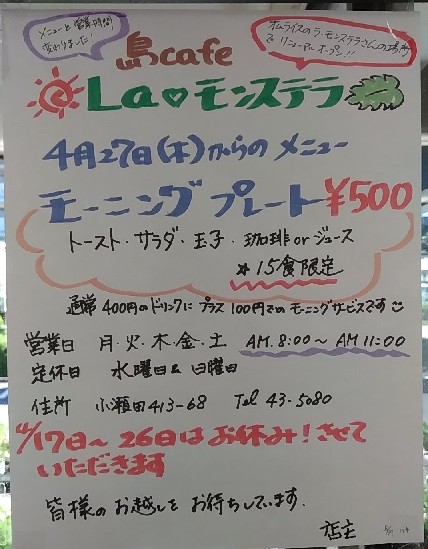 メニューと営業時間
変わりました!
オムライスのラ・モンステラさんの場所
でリニューアルオープン!!
島cafe
La♡モンステラ
4月27日(木)からのメニュー
モーニングプレート¥500
トースト・サラダ・玉子・珈琲orジュース
☆15食限定
通常400円のドリンクにプラス100円でのモーニングサービスです
営業日 月・火・木・金・土 AM.8:00~AM11:00
定休日 水曜日&日曜日
住所 小瀬田413-68 Tel 43-5080
4/17日~26日はお休み!させて
いただきます
皆様のお越しをお待ちしています.
店主